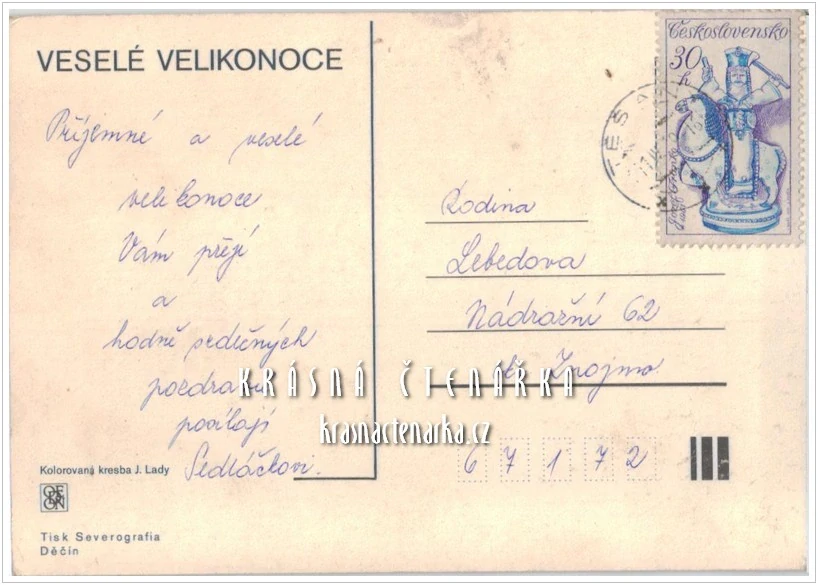 VESELÉ VELIKONOCE
Příjemné a veselé
velikonoce
Vám přejí
a
hodně srdečných
pozdravů
posílají
Sedláčkovi.
Kolorovaná kresba J. Lady
ODEON
Tisk Severografia
Děčín
Československo
30
h
Rodina
Lebedova
Nádražní 62
Znojmo
6 7 1 7 2
KRÁSNÁ ČTENÁŘKA
krasnactenarka.cz